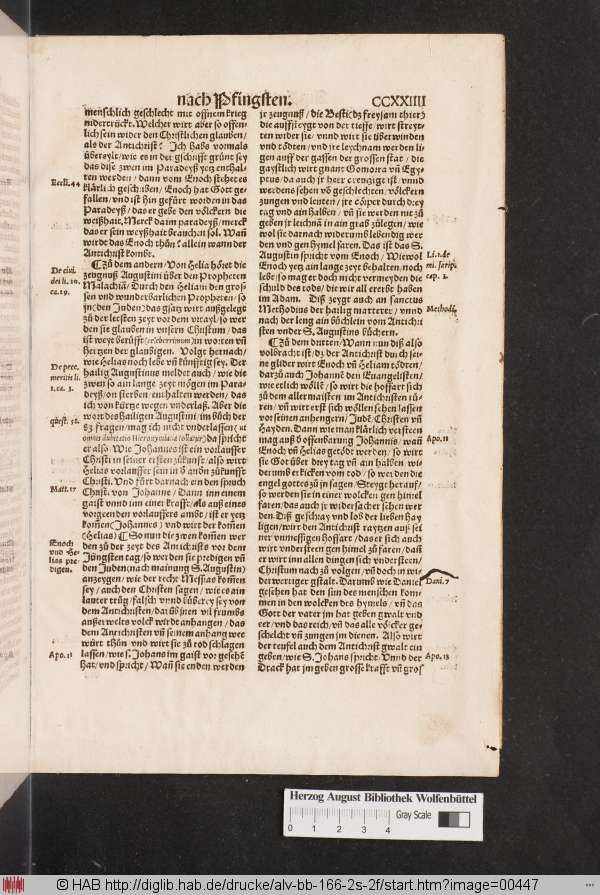 nach Pfingsten.
CCXXIIII
menschlich geschlecht mit offnem krieg
nidertruckt. Welcher wirt aber so offen-
lich sein wider den Christlichen glauben/
als der Antichrist? Ich habs vormals
Eccli.44
ren werden/ dann vom Enoch stehet es
klärlich geschriben/ Enoch hat Gott ge-
fallen/ vnd ist hin gefürt worden in das
Paradeyß/ das er gebe den völckern die
weißhait. Merck da im paradeyß/ merck
das er sein weyßhait brauchen sol. Wañ
wirdt das Enoch thůn? allein wann der
Antichrist kombt.
De ciui.
dei li. 20.
ca. 29.
Zů dem andern/ Von Helia höret die
zeugnuß Augustini über den Propheten
Malachia/ Durch den Heliam den gros-
sen vnd wunderbarlichen Propheten/ so
jn (den Juden) das gsatz wirt außgelegt
zů der letsten zeyt vor dem vrtayl/ so wer
den sie glauben in vnsern Christum/ das
ist weyt berůfft (celeberrimum) in worten vñ
hertzen der glaubigen. Volgt hernach/
wie Helias noch lebe vñ künfftig sey. Der
De pec.
meritis li.
1. ca. 3.
hailig Augustinus meldet auch/ wie die
zwen so ain lange zeyt mögen im Para-
deyß/ on sterben/ enthalten werden/ das
ich von kürtze wegen vnderlaß. Aber die
wort des hailigen Augustini/ im bůch der
quest. 32.
83 fragen/ mag ich nicht vnderlassen (
da spricht
er also. Wie Johannes ist ein vorlauffer
Christi in seiner ersten zůkunft/ also wirt
Helias vorlauffer sein in d' andñ zůkunfft
Christi. Vnd fürt darnach ein den spruch
Matt.17
Christi von Johanne/ Dann inn einem
gaist vnnd inn einer krafft/ Als auß eines
vorgeenden vorlauffers ambt/ ist er yetz
kom̃en (Johannes) vnd wirt der kom̃en
(Helias) So nun die zwen kom̃en wer
Enoch
vnd He-
lias pre-
digen.
den zů der zeyt des Antichrists vor dem
Jüngsten tag/ so werden sie predigen vñ
den Juden (nach mainung S. Augustin)
anzeygen/ wie der recht Messias kom̃en
sey/ auch den Christen sagen/ wie es ain
lauter trůg/ falsch vnnd bůberey sey von
dem Antichristen/
außerwelts volck wirdt anhangen/ das
dem Antichristen vñ seinem anhang wee
würt thůn vnd wirt sie zů tod schlagen
Apo.11
lassen/ wie S. Johans im gaist vor gesehẽ
hat/ vnd spricht/ Wañ sie enden werden
jr zeugnuß/ die Besti (dz freysam thier)
die auffsteygt von der tieffe/ wirt streyt-
ten wider sie/ vnnd wirt sie überwinden
vnd tödten/ vnd jre leychnam werden li-
gen auff der gassen der grossen stat/ die
gaystlich wirt gnant Gomorra vñ Egy-
ptus/ da auch jr herr creutzigt ist/ vnnd
werdens sehen võ geschlechten/ völckern
zungen vnd leuten/ jre cörper durch drey
tag vnd ain halben/ vñ sie werden nit zů
geben jr leichnã in ain grab zůlegen/ wie
wol sie darnach widerumb lebendig wer
den vnd gen hymel faren. Das ist das S.
Augustin spricht vom Enoch/ Wiewol
Li.1.de
mi. scrip.
cap. 2.
Enoch yetz ain lange zeyt behalten/ noch
lebe/ so mag er doch nicht vermeyden die
schuld des tods/ die wir all ererbt haben
im Adam. Diß zeygt auch an sanctus
Methodi.
Methodius der hailig martterer/ vnnd
nach der leng ain bůchlein vom Antichri
sten vnder S. Augustins bůchern.
Zů dem dritten/ Wann nun diß also
volbracht ist/ dz der Antichrist durch sei-
ne glider wirt Enoch vñ Heliam tödten/
darzů auch Johannẽ den Euangelisten/
wie etlich wöllẽ/ so wirt die hoffart sich
zů dem allermaisten im Antichristen rů-
ren/ vñ wirt erst sich wöllen sehen lassen
vor seinen anhengern/ Judẽ/ Christen vñ
Hayden. Dann wie man klärlich versteen
Apo.11
mag auß d' offenbarung Johannis/ wañ
Enoch vñ Helias getödt werden/ so wirt
sie Got über drey tag vñ ain halben wi-
derumb erkicken vom tod/ so werden die
engel gottes zů jn sagen/ Steygt herauf/
so werden sie in einer wolcken gen himel
faren/ das auch jr widersacher sehen wer
den. Diß geschray vnd lob der lieben hay
ligen/ wirt den Antichrist raytzen auß sei
ner vnmessigen hoffart/ das er sich auch
wirt vndersteen gen himel zů faren/ dañ
er wirt inn allen dingen sich vndersteen/
Christum nach zů volgen/ vñ doch in wi-
der wertiger gstalt. Darumb wie Daniel
Dani.7
gesehen hat den sun des menschen kom-
men in den wolcken des hymels/ vñ das
Gott der vater im hat geben gwalt vnd
eer/ vnd das reich/ vñ das alle völcker ge-
schlecht vñ zungen im dienen. Also wirt
der teufel auch dem Antichrist gwalt ein
Apo.13
geben/ wie S. Johans spricht/ Vnnd der
Drack hat jm geben grosse krafft vñ gros
Herzog August Bibliothek Wolfenbüttel
0 1 2 3 4 Gray Scale
© HAB http://diglib.hab.de/drucke/alv-bb-166-2s-2f/start.htm?image=00447